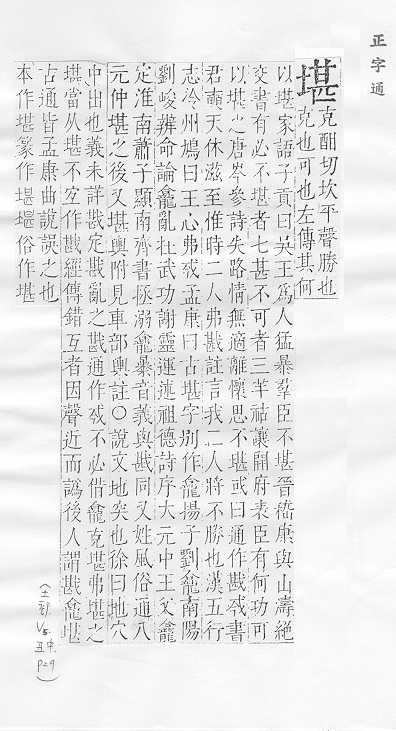 正字通
堪
克酣切坎平聲勝也
克也可也左傳其何
以堪家語子貢曰吳王爲人猛暴羣臣不堪晉嵇康與山濤絶
交書有必不堪者七甚不可者三羊祜讓開府表臣有何功可
以堪之唐岑參詩失路情無適離懷思不堪或曰通作戡㦴書
君奭天休滋至惟時二人弗戡註言我二人將不勝也漢五行
志泠州鳩曰王心弗㦴孟康曰古堪字別作龕揚子劉龕南陽
劉峻辨命論龕亂在武功謝靈運述祖德詩序太元中王父龕
定淮南蕭子顯南齊書拯溺龕暴音義與戡同又姓風俗通八
元仲堪之後又堪輿附見車部輿註○說文地突也徐曰地穴
中出也義未詳戡定戡亂之戡通作㦴不必借龕克堪弗堪之
堪當从堪不宜作戡經傳錯互者因聲近而譌後人謂戡龕堪
古通皆孟康曲說誤之也
本作堪篆作堪堪俗作堪
(土部
V5
丑中
P29)